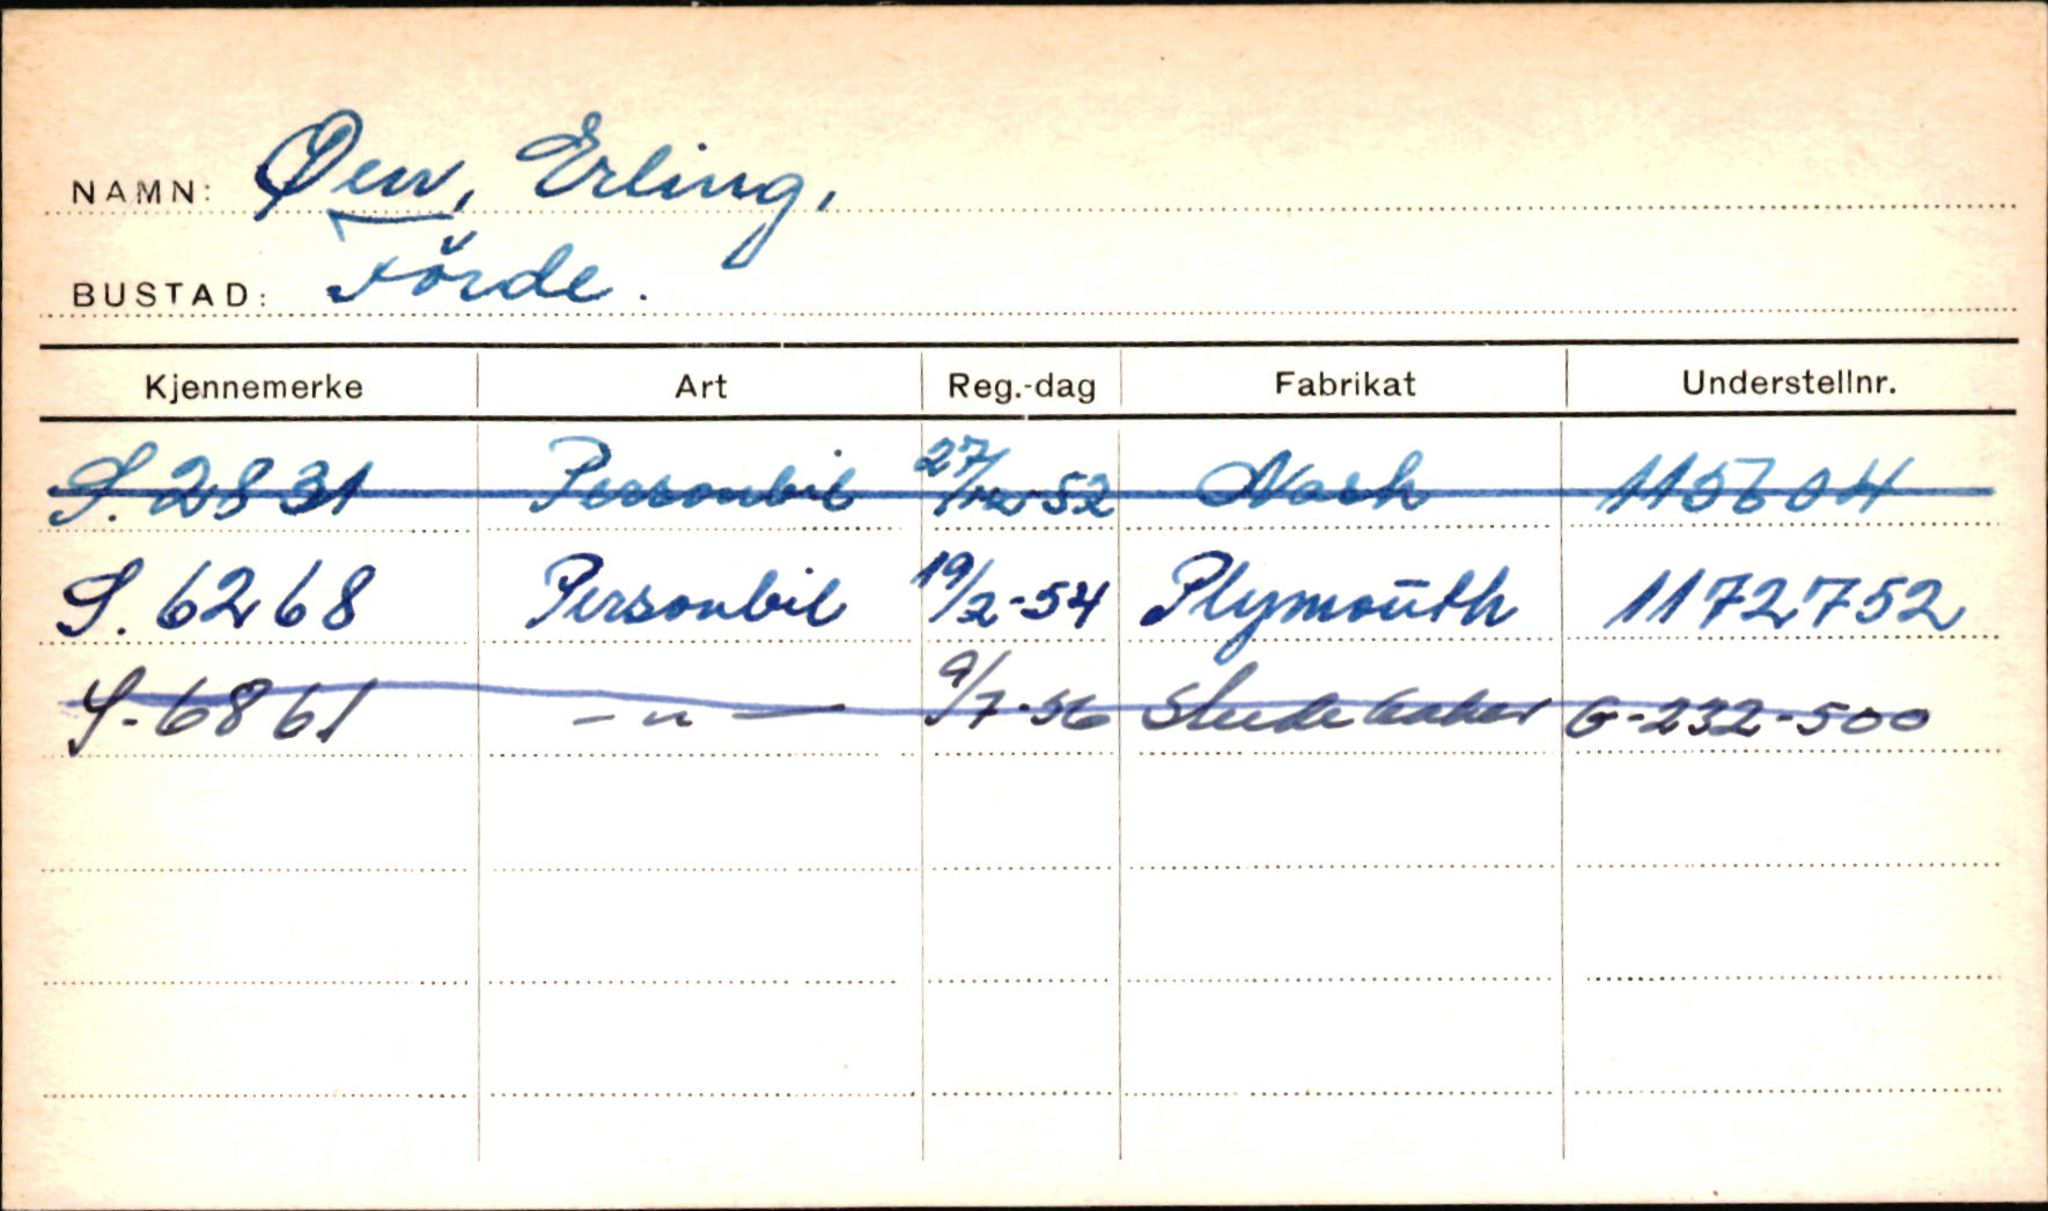 NAMN: Øen, Erling.
BUSTAD: Förde.
Kjennemerke Art Reg.-dag Fabrikat Understellnr.
S. 2831 Personbil 27/12-52 Nash 115604
S. 6268 Personbil 19/2-54 Plymouth 1172752
S-6861 - " - 9/7-56 Studebaker G-232-500